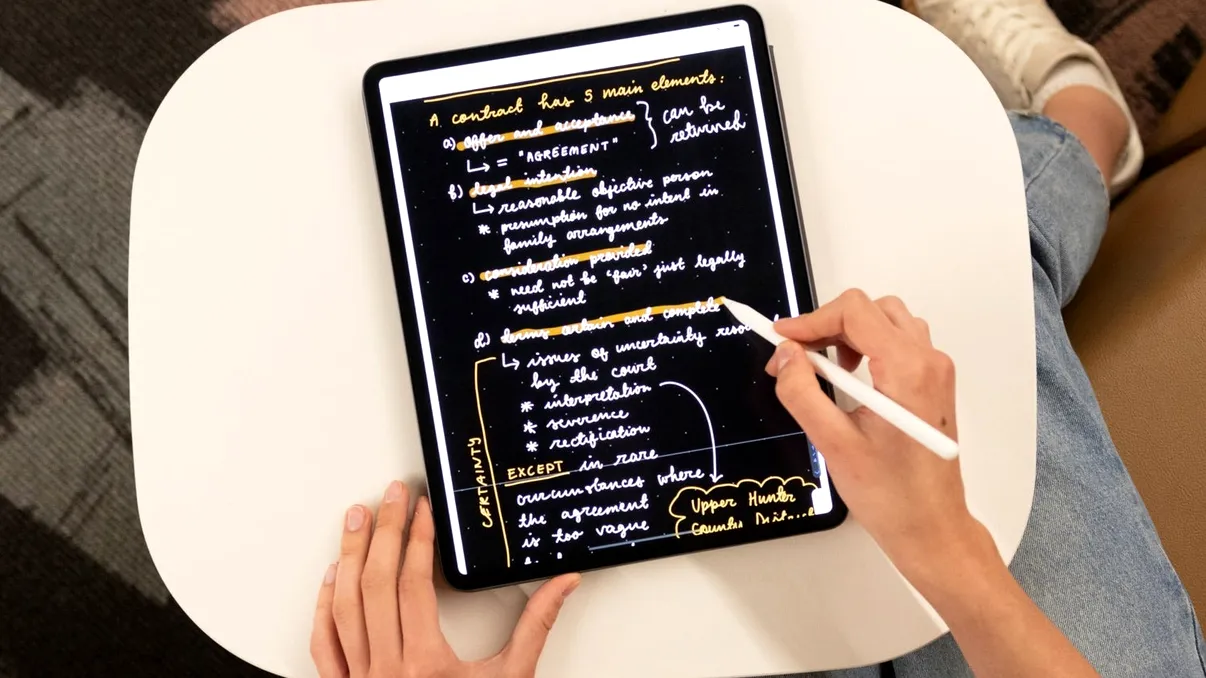 A contract has 5 main elements:
a) offer and acceptance
↳ = "AGREEMENT"
can be
returned
b) legal intention
↳ reasonable objective person
* presumption for no intent in
family arrangements
c) consideration provided
* need not be 'fair' just legally
sufficient
d) terms certain and complete
↳ issues of uncertainty
by the court
* interpretation
* severence
* rectification
CERTAINTY
EXCEPT in rare
circumstances where
the agreement
is too vague
Upper Hunter
County District